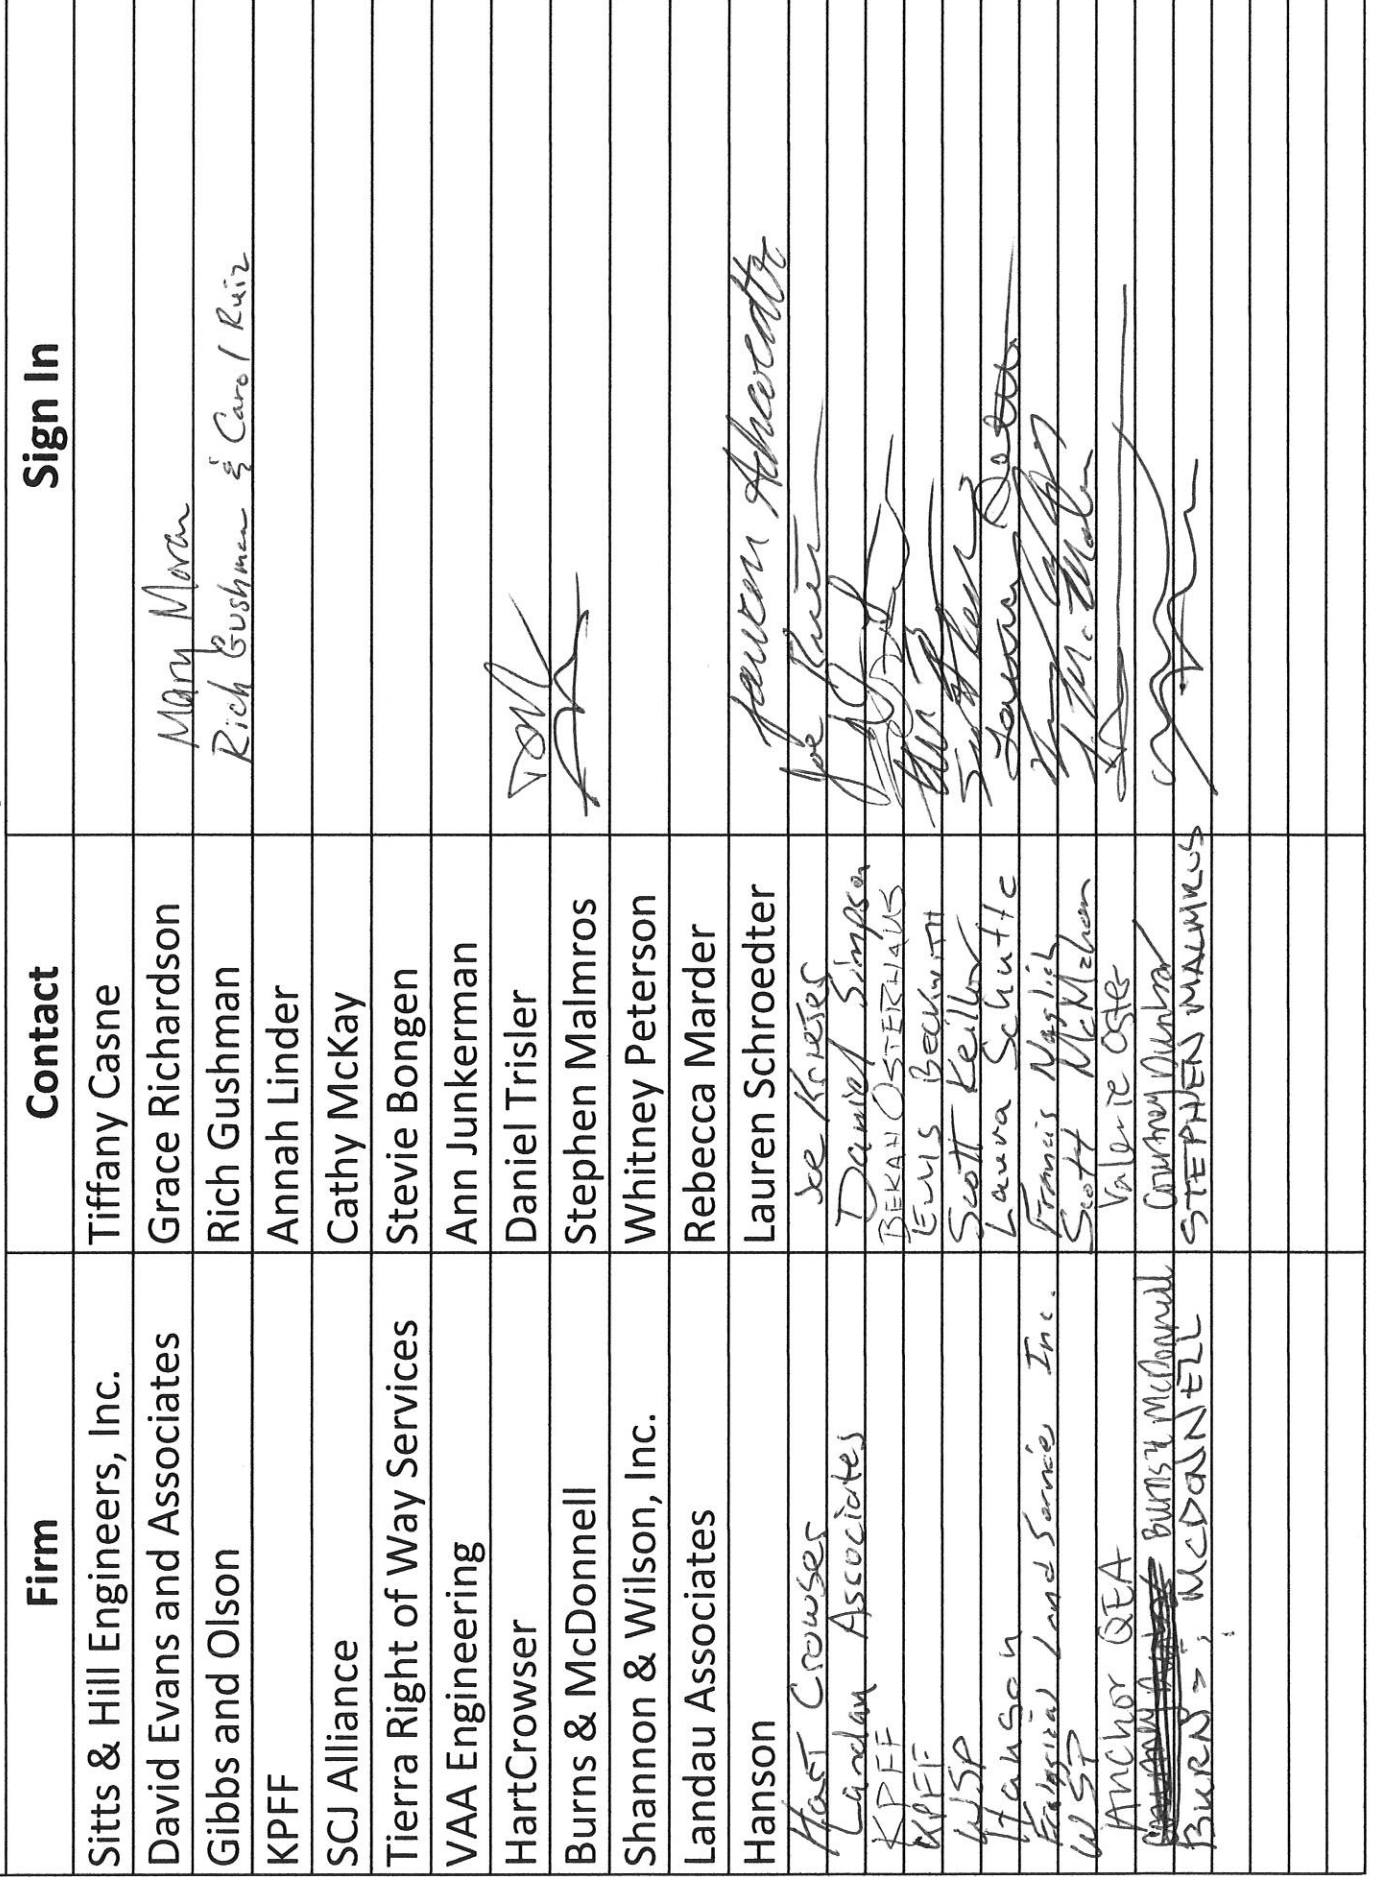 Firm Contact Sign In
Sitts & Hill Engineers, Inc. Tiffany Casne
David Evans and Associates Grace Richardson Mary Moran
Gibbs and Olson Rich Gushman Rich Gushman & Carol Ruiz
KPFF Annah Linder
SCJ Alliance Cathy McKay
Tierra Right of Way Services Stevie Bongen
VAA Engineering Ann Junkerman
HartCrowser Daniel Trisler
Burns & McDonnell Stephen Malmros
Shannon & Wilson, Inc. Whitney Peterson
Landau Associates Rebecca Marder
Hanson Lauren Schroedter Lauren Schroedter
Hart Crowser Joe
Landau Associates Daniel Simpson
KPFF BEKAH OSTERHAUS
KPFF Beckwith
WSP Scott Keillor
Hanson Laura Schutte
Land Services Inc. Francis Naglich
WSP Scott McMahan
Anchor QEA Valerie Oster
Burns & McDonnell Courtney Dunbar
BURNS & MCDONNELL STEPHEN MALMROS